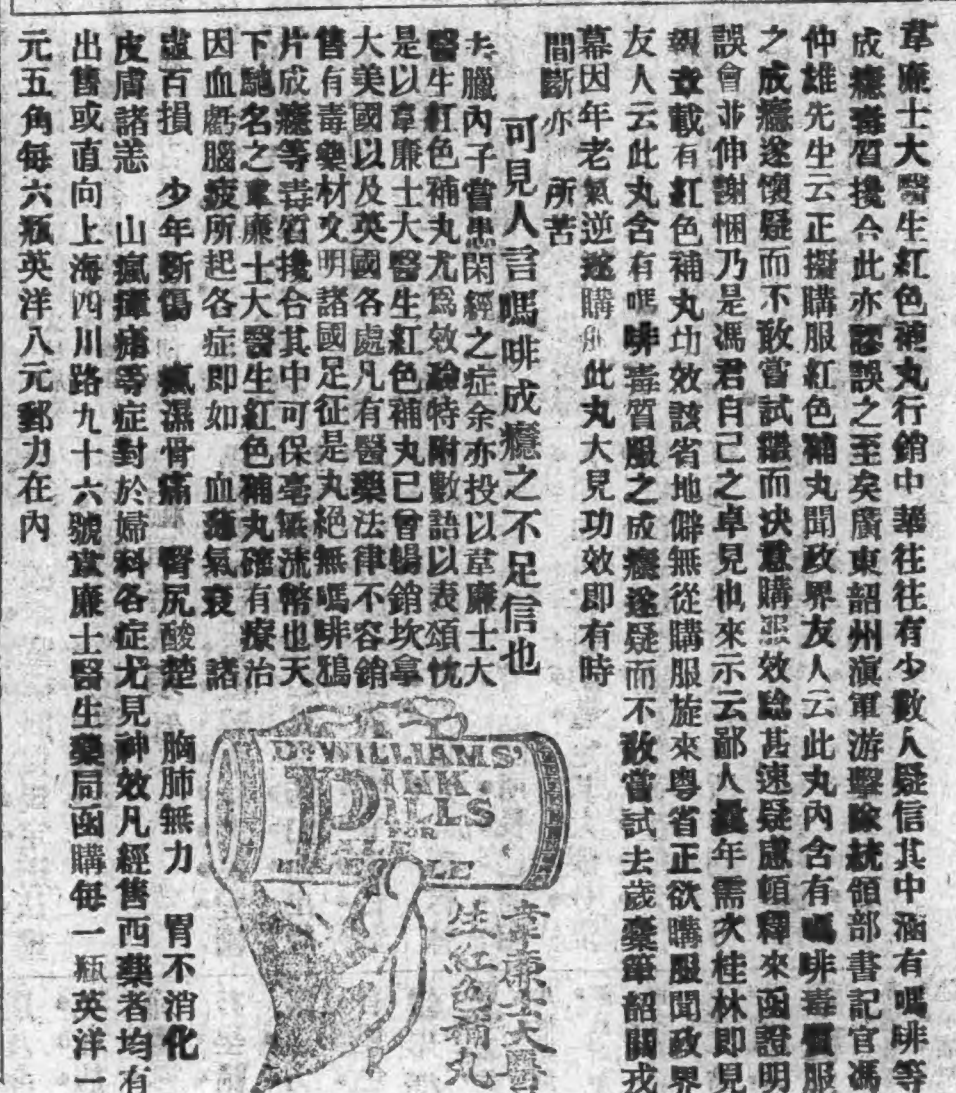 韋廉士大醫生紅色補丸行銷中華往往有少數人疑信其中涵有嗎啡等
成癮毒質攙合此亦謬誤之至矣廣東韶州滇軍游擊隊統領部書記官馮
仲雄先生云正擬購服紅色補丸聞政界友人云此丸內含有嗎啡毒質服
之成癮遂懷疑而不敢嘗試繼而決意購服效驗甚速疑慮頓釋來函證明
誤會並伸謝悃乃是馮君自己之卓見也來示云鄙人曩年需次桂林即見
報章載有紅色補丸功效該省地僻無從購服旋來粤省正欲購服聞政界
友人云此丸含有嗎啡毒質服之成癮遂疑而不敢嘗試去歲橐筆韶關戎
幕因年老氣逆遂購 此丸大見功效即有時
間斷亦 所苦
可見人言嗎啡成癮之不足信也
去臘內子嘗患閑經之症余亦投以韋廉士大
醫生紅色補丸尤爲效驗特附數語以表頌忱
是以韋廉士大醫生紅色補丸已曾暢銷坎拿
大美國以及英國各處凡有醫藥法律不容銷
售有毒藥材文明諸國足征是丸絕無嗎啡鴉
片成癮等毒質攙合其中可保毫無流幣也天
下馳名之韋廉士大醫生紅色補丸確有療治
因血虧腦疲所起各症即如 血薄氣衰 諸
虛百損 少年斷傷 瘋濕骨痛 腎尻酸楚 胸肺無力 胃不消化
皮膚諸恙 山嵐瘴痛等症對於婦科各症尤見神效凡經售西藥者均有
出售或直向上海四川路九十六號韋廉士醫生藥局函購每一瓶英洋一
元五角每六瓶英洋八元郵力在內
DR WILLIAMS'
PINK
PILLS
FOR
PALE
PEOPLE
韋廉士大醫
生紅色補丸